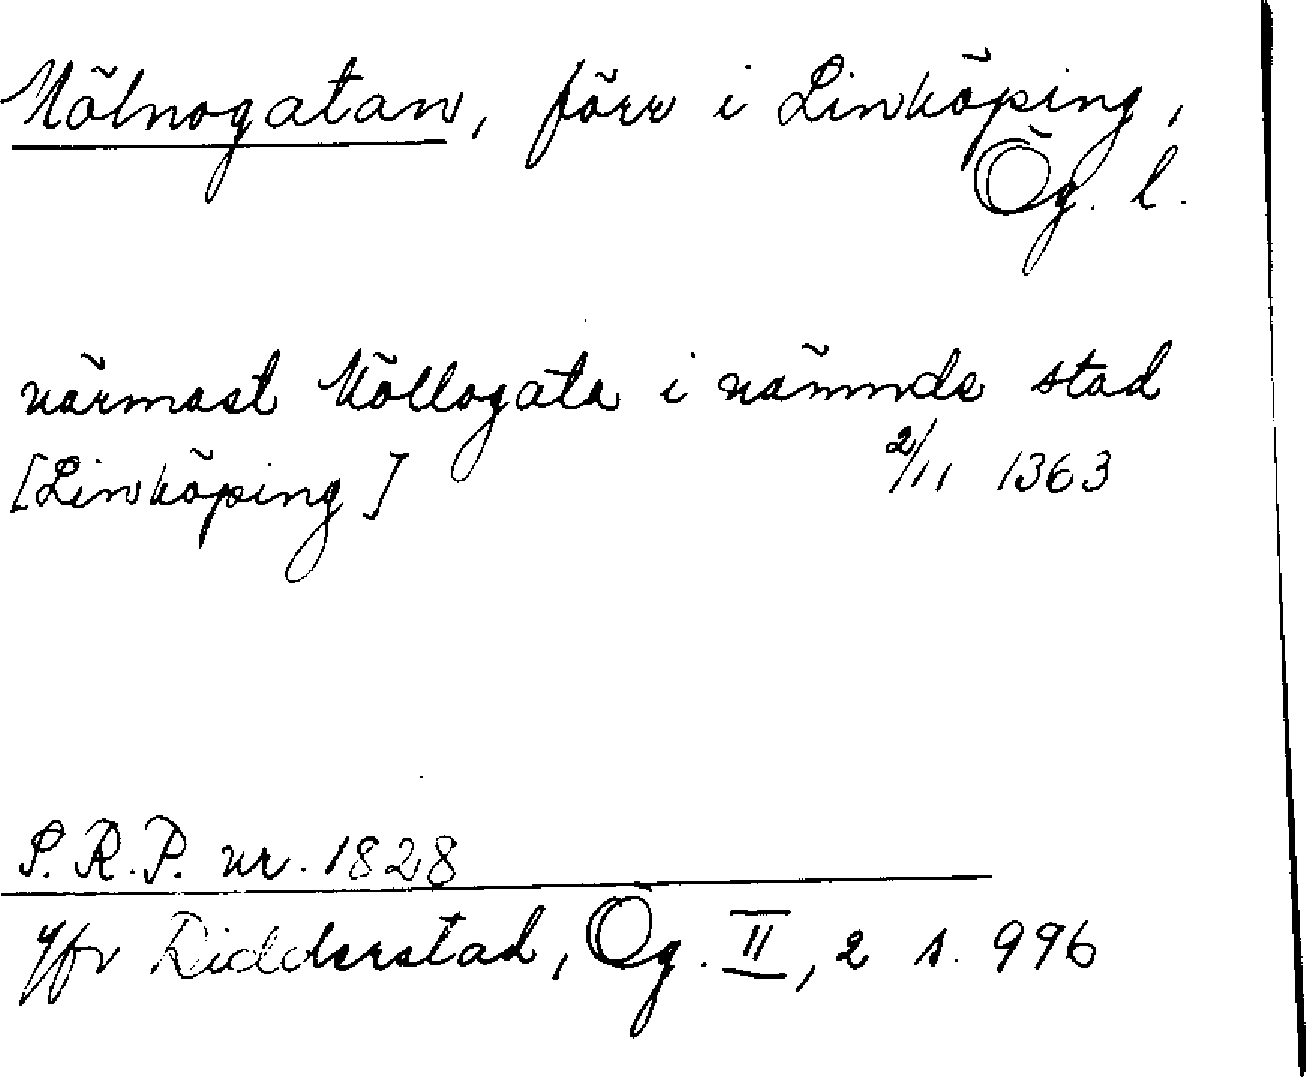 Mölnogatan, förr i Linköping,
Ög. l.
närmast Möllogata i nämnde stad
[Linköping] 2/11 1363
S.R.P. nr. 1828
Jfr Ridderstad, Ög. II, 2 s. 996